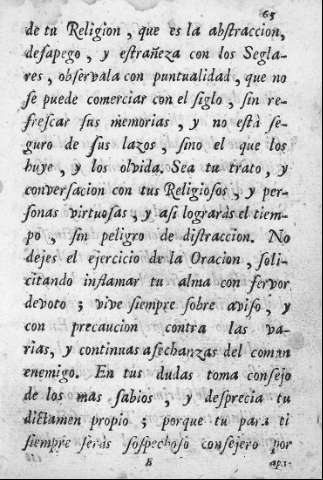 65
de tu Religion, que es la abstraccion,
desapego, y estrañeza con los Segla-
res, observala con puntualidad, que no
se puede comerciar con el siglo, sin re-
frescar sus memorias, y no està se-
guro de sus lazos, sino el que los
huye, y los olvida. Sea tu trato, y
conversacion con tus Religiosos, y per-
sonas virtuosas, y asi lograràs el tiem-
po, sin peligro de distraccion. No
dejes el ejercicio de la Oracion, soli-
citando inflamar tu alma con fervor
devoto; vive siempre sobre aviso, y
con precaucion contra las va-
rias, y continuas asechanzas del comun
enemigo. En tus dudas toma consejo
de los mas sabios, y desprecia tu
dictamen propio; porque tu para ti
siempre seràs sospechoso consejero por
E ap.1-